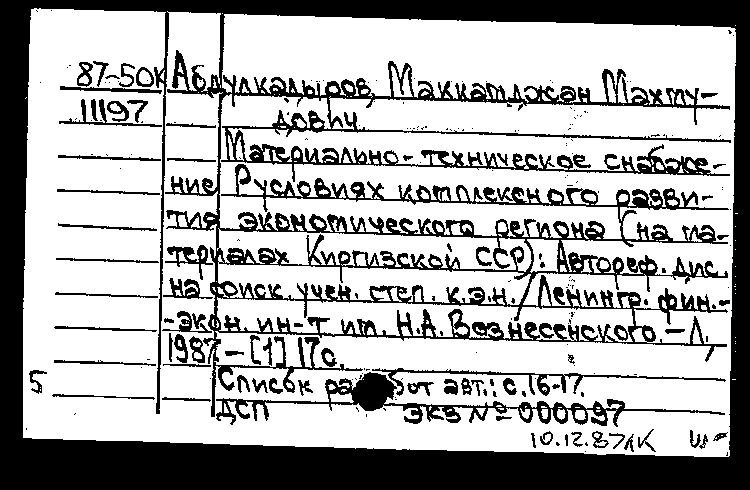 87-50К Абдулкадыров, Маккамджан Махму-
11197 дович.
Материально-техническое снабже-
ние в условиях комплексного разви-
тия экономического региона (на ма-
териалах Киргизской ССР): Автореф. дис.
на соиск. учен. степ. к.э.н. / Ленингр. фин.-
-экон. ин-т им. Н.А. Вознесенского. – Л.,
1987 – [1] 17 с.
Список работ авт.: с. 16-17.
5
ДСП ЭКЗ № 000097
10.12.87